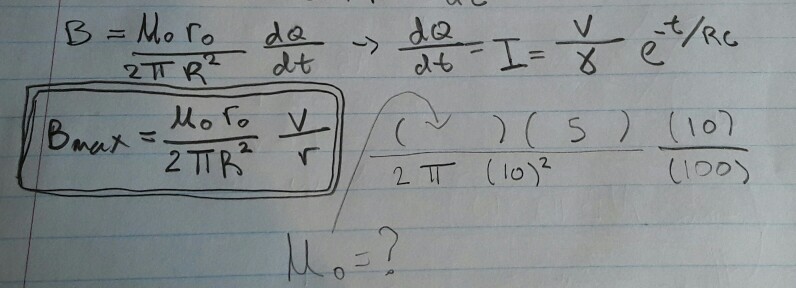 B = μ₀ r₀ / 2π R² dQ/dt → dQ/dt = I = V/r e^-t/RC
Bmax = μ₀ r₀ / 2πR² V/r
( ) ( 5 ) / 2π (10)² (10) / (100)
μ₀ = ?